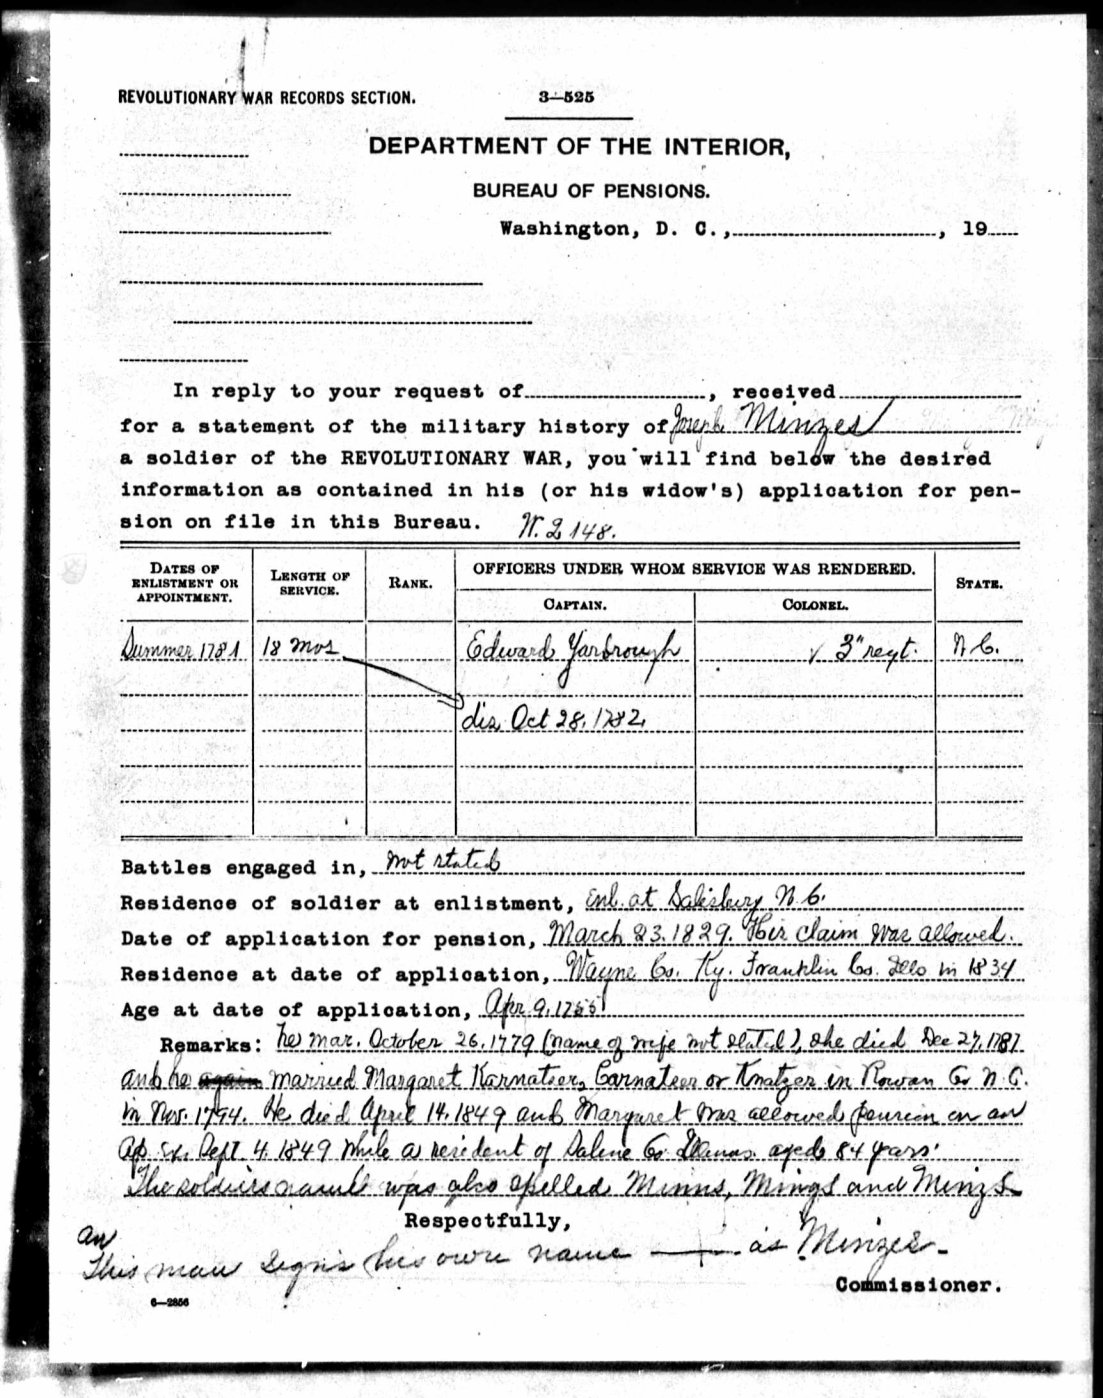 REVOLUTIONARY WAR RECORDS SECTION. 3—525
DEPARTMENT OF THE INTERIOR,
BUREAU OF PENSIONS.
Washington, D. C., , 19
In reply to your request of , received
for a statement of the military history of Joseph Minzes
a soldier of the REVOLUTIONARY WAR, you will find below the desired
information as contained in his (or his widow's) application for pen-
sion on file in this Bureau. W. 2148.
DATES OF ENLISTMENT OR APPOINTMENT. LENGTH OF SERVICE. RANK. OFFICERS UNDER WHOM SERVICE WAS RENDERED. STATE.
CAPTAIN. COLONEL.
Summer 1781 18 mos Edward Yarbrough ✓ 3" regt. N.C.
dis Oct 28, 1782,
Battles engaged in, not stated
Residence of soldier at enlistment, Enl. at Salisbury N.C.
Date of application for pension, March 23. 1829. His claim was allowed.
Residence at date of application, Wayne Co. Ky. Franklin Co. Ills in 1834
Age at date of application, Apr 9, 1755
Remarks: he mar. October 26, 1779 (name of wife not stated), she died Dec 27, 1787
and he again married Margaret Karnatser, Carnatser or Knatzer in Rowan Co N.C.
in Nov. 1794. He died April 14. 1849 and Margaret was allowed pension on an
ap. ex. Sept. 4. 1849 while a resident of Saline Co. aged 84 years.
The soldiers name was also spelled Minns, Mings and Minzs
Respectfully,
This man signs his own name — as Minzes.
Commissioner.
6—2856